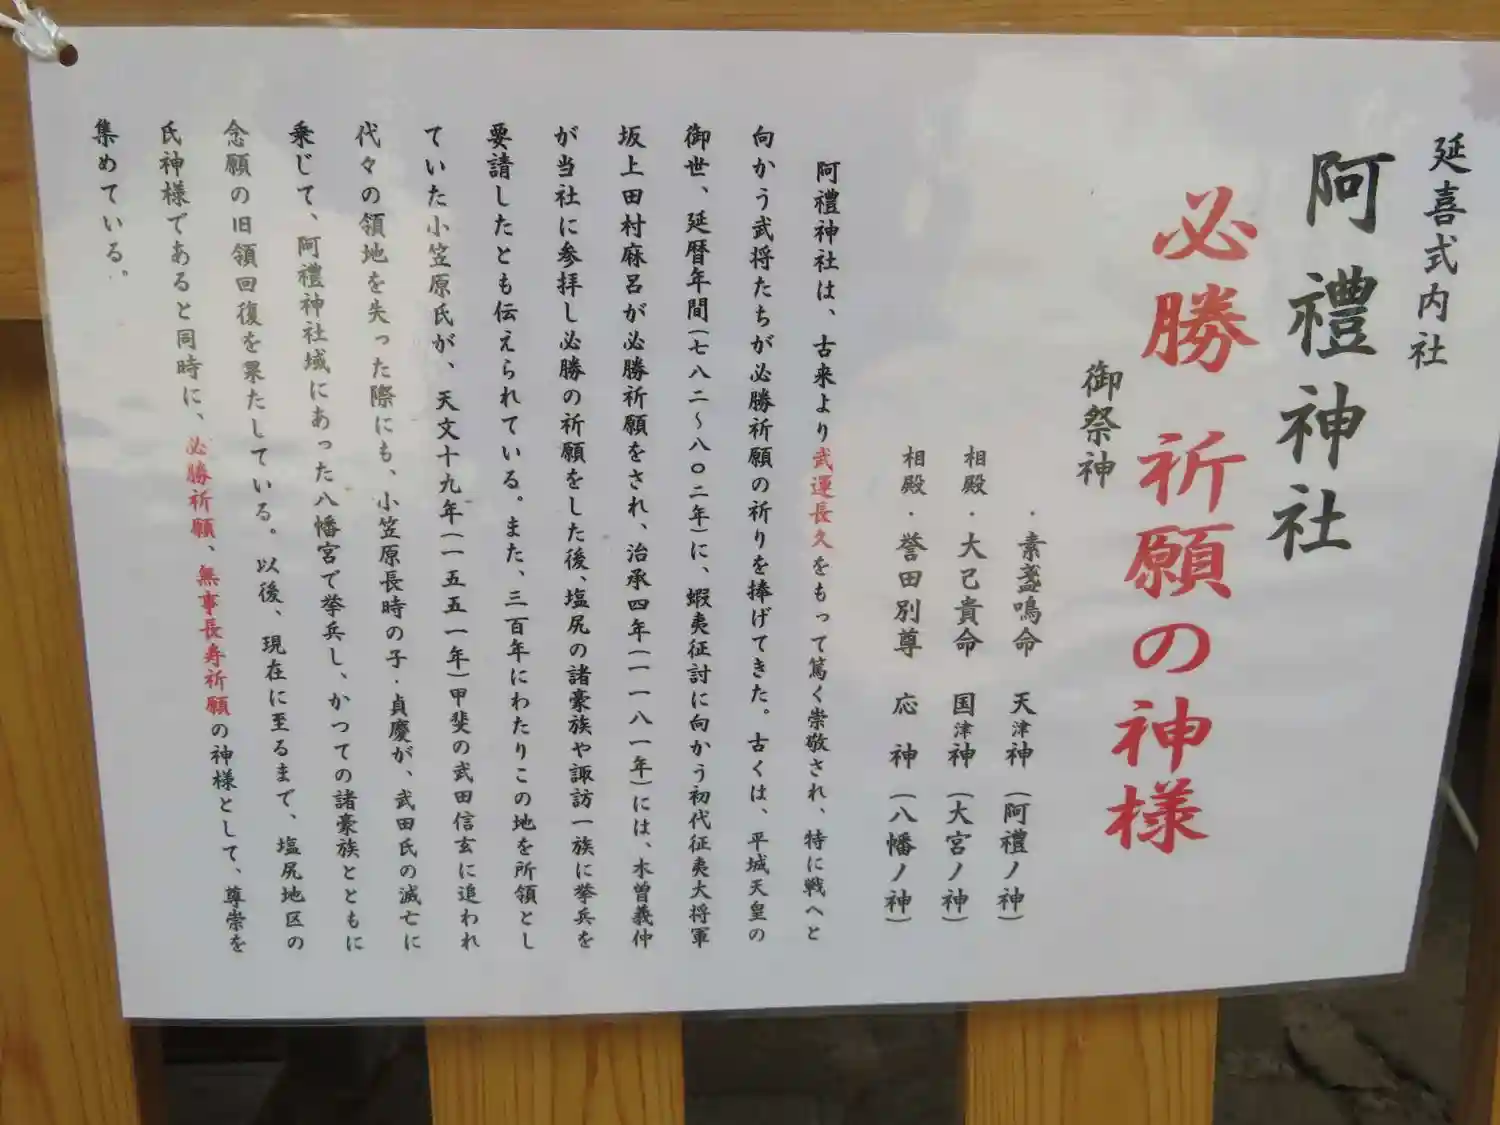 延喜式内社
阿禮神社
必勝 祈願の神様
御祭神
・素盞鳴命 天津神(阿禮ノ神)
相殿・大己貴命 国津神(大宮ノ神)
相殿・誉田別尊 応 神(八幡ノ神)
阿禮神社は、古来より武運長久をもって篤く崇敬され、特に戦へと
向かう武将たちが必勝祈願の祈りを捧げてきた。古くは、平城天皇の
御世、延暦年間(七八二〜八〇二年)に、蝦夷征討に向かう初代征夷大将軍
坂上田村麻呂が必勝祈願をされ、治承四年(一一八一年)には、木曽義仲
が当社に参拝し必勝の祈願をした後、塩尻の諸豪族や諏訪一族に挙兵を
要請したとも伝えられている。また、三百年にわたりこの地を所領とし
ていた小笠原氏が、天文十九年(一五五一年)甲斐の武田信玄に追われ
代々の領地を失った際にも、小笠原長時の子・貞慶が、武田氏の滅亡に
乗じて、阿禮神社域にあった八幡宮で挙兵し、かつての諸豪族とともに
念願の旧領回復を果たしている。以後、現在に至るまで、塩尻地区の
氏神様であると同時に、必勝祈願、無事長寿祈願の神様として、尊崇を
集めている。